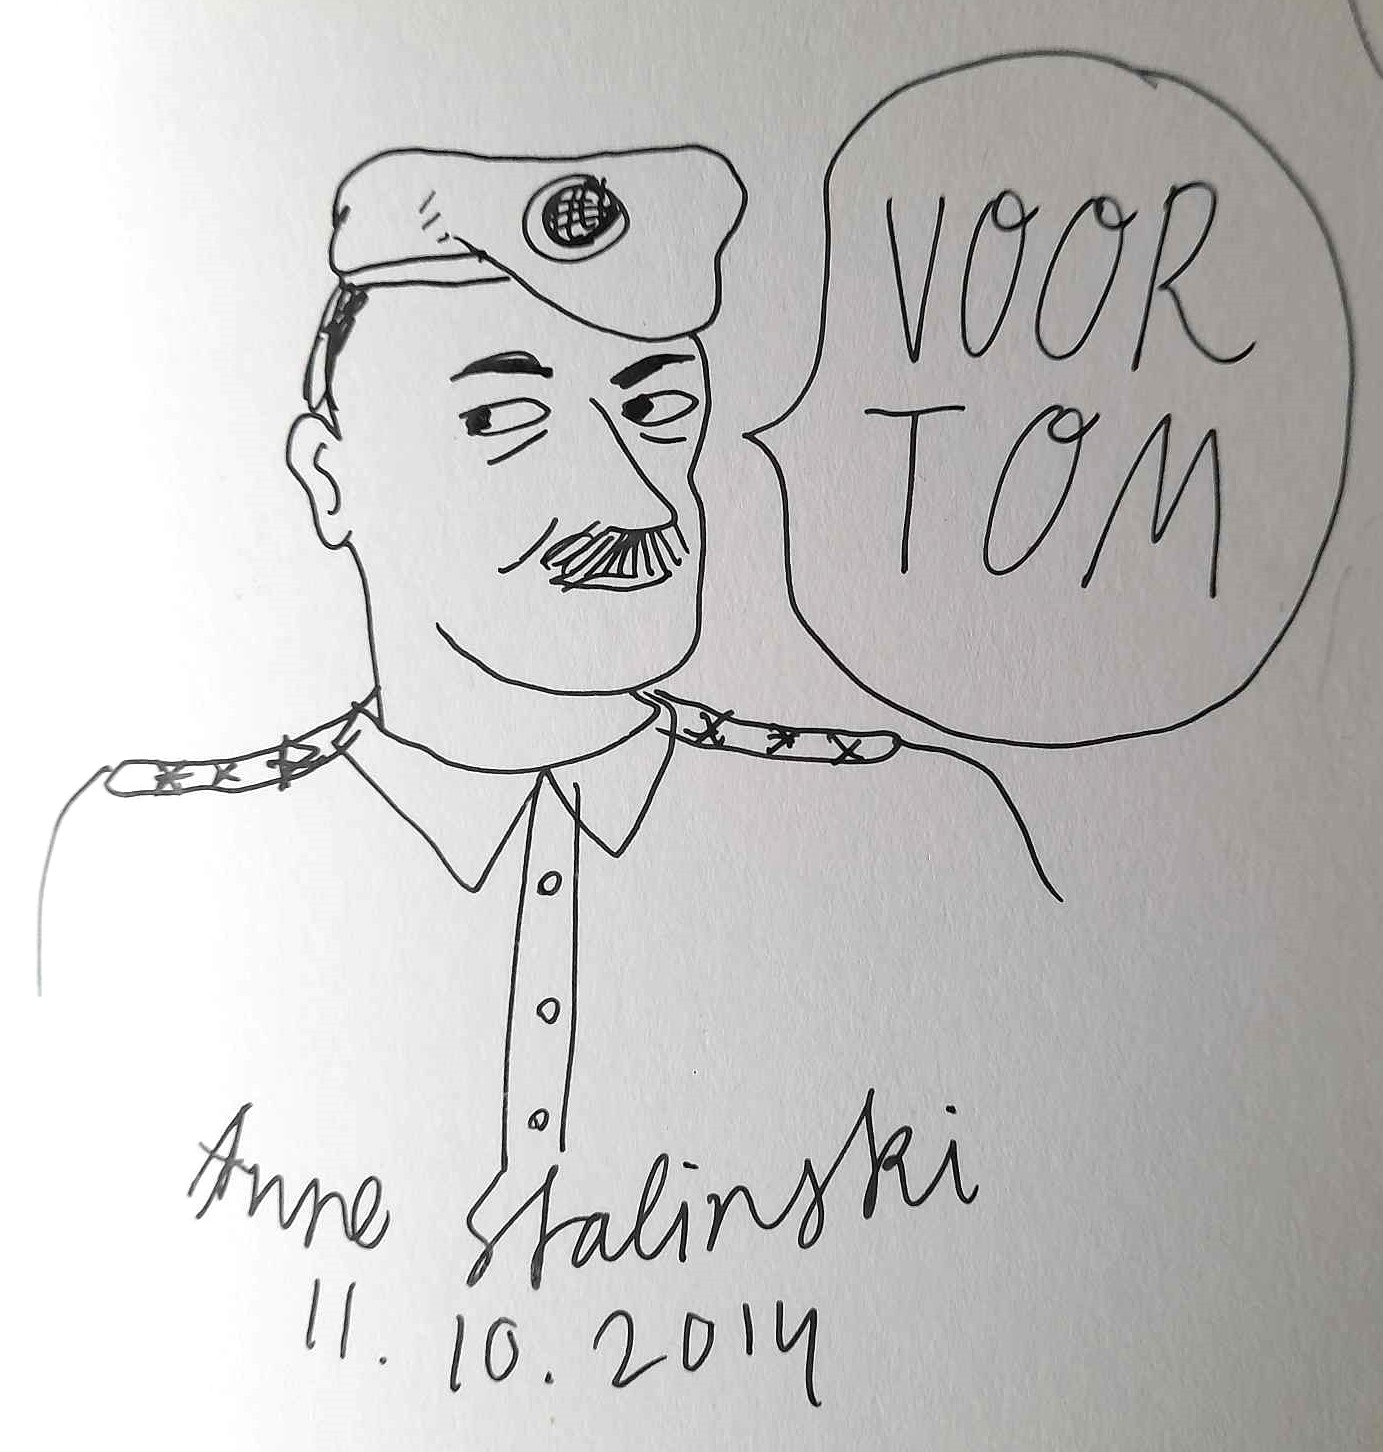 VOOR
TOM
Anne Stalinski
11. 10. 2014